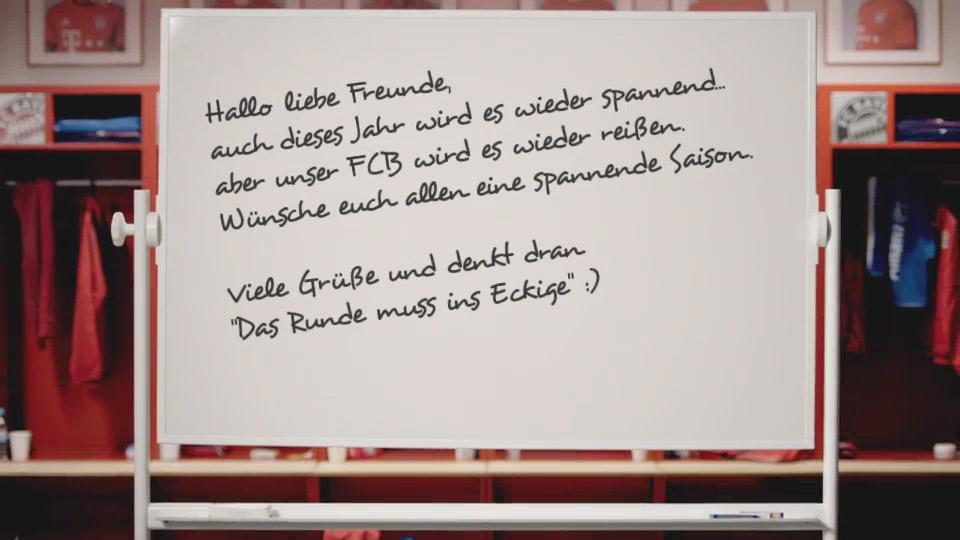 Hallo liebe Freunde,
auch dieses Jahr wird es wieder spannend...
aber unser FCB wird es wieder reißen.
Wünsche euch allen eine spannende Saison.
Viele Grüße und denkt dran
"Das Runde muss ins Eckige" :)